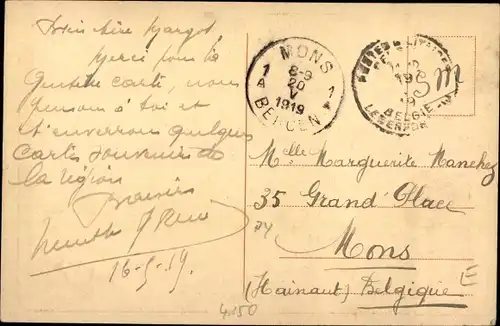 Bien chère Margot
Merci pour ta
gentille carte, nous
pensons à toi et
t'enverrons quelques
cartes souvenirs de
la région
Baisers
16-5-19.
MONS
1A
8-9
20
V
1919
1A
BERGEN
POSTES MILITAIRES
BELGIE
LEGERPOST
SM
Melle Marguerite Manchez
35 Grand' Place
Mons
(Hainaut) Belgique
E
4150